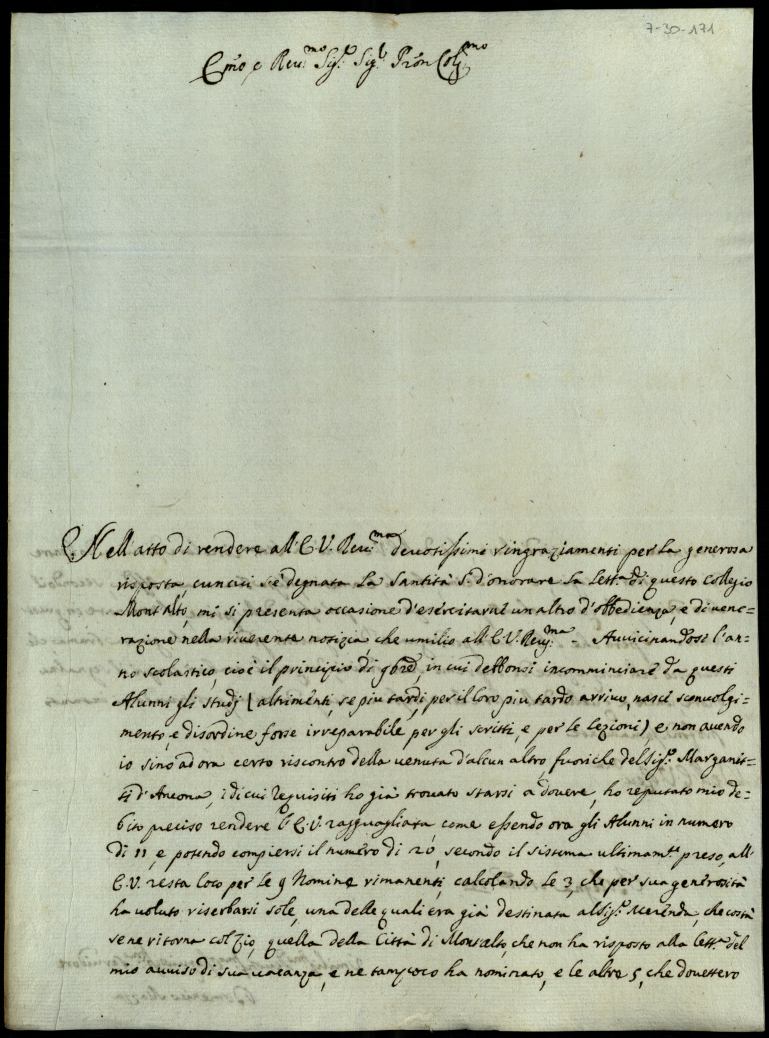 7-30-171
Emo, e Revmo Sigr Sigr Pron Colmo
Nell'atto di rendere all'E.V. Revma devotissimi ringraziamenti per la generosa
risposta, cun cui s'è degnata la Santità S. d'onorare la Letta di questo Collegio
Montalto, mi si presenta occasione d'esercitarne un altro d'obbedienza, e di vene=
razione nella riverente notizia, che umilio all'E.V. Revma - Avvicinandosi l'an=
no scolastico, cioè il principio di 9bre, in cui debbonsi incomminciare da questi
Alunni gli studj (altrimenti, se più tardi, per il loro più tardo arrivo, nasce sconvolgi=
mento, e disordine forse irreparabile per gli scritti, e per le lezioni) e non avendo
io sino ad ora certo riscontro della venuta d'alcun altro, fuoriche del Sigr Marganet=
ti d'Ancona, i di cui requisiti ho già trovato starsi a dovere, ho reputato mio de=
bito preciso rendere l'E.V. ragguagliata, come essendo ora gli Alunni in numero
di 11, e potendo compiersi il numero di 20, secondo il sistema ultimamte preso, all'
E.V. resta loco per le 9 Nomine rimanenti, calcolando le 3, che per sua generosità
ha voluto riserbarsi sole, una delle quali era già destinata al Sigr Merenda, che costà
se ne ritorna col zio, quella della Città di Montalto, che non ha risposto alla letta del
mio avviso di sua vacanza, e ne tampoco ha nominato, e le altre 5, che dovettero